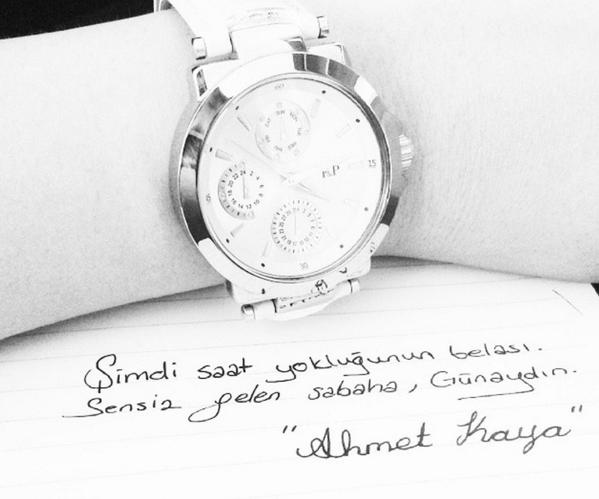 60
r&P
15
30
Şimdi saat yokluğunun belası.
Sensiz gelen sabaha, Günaydın.
"Ahmet Kaya"